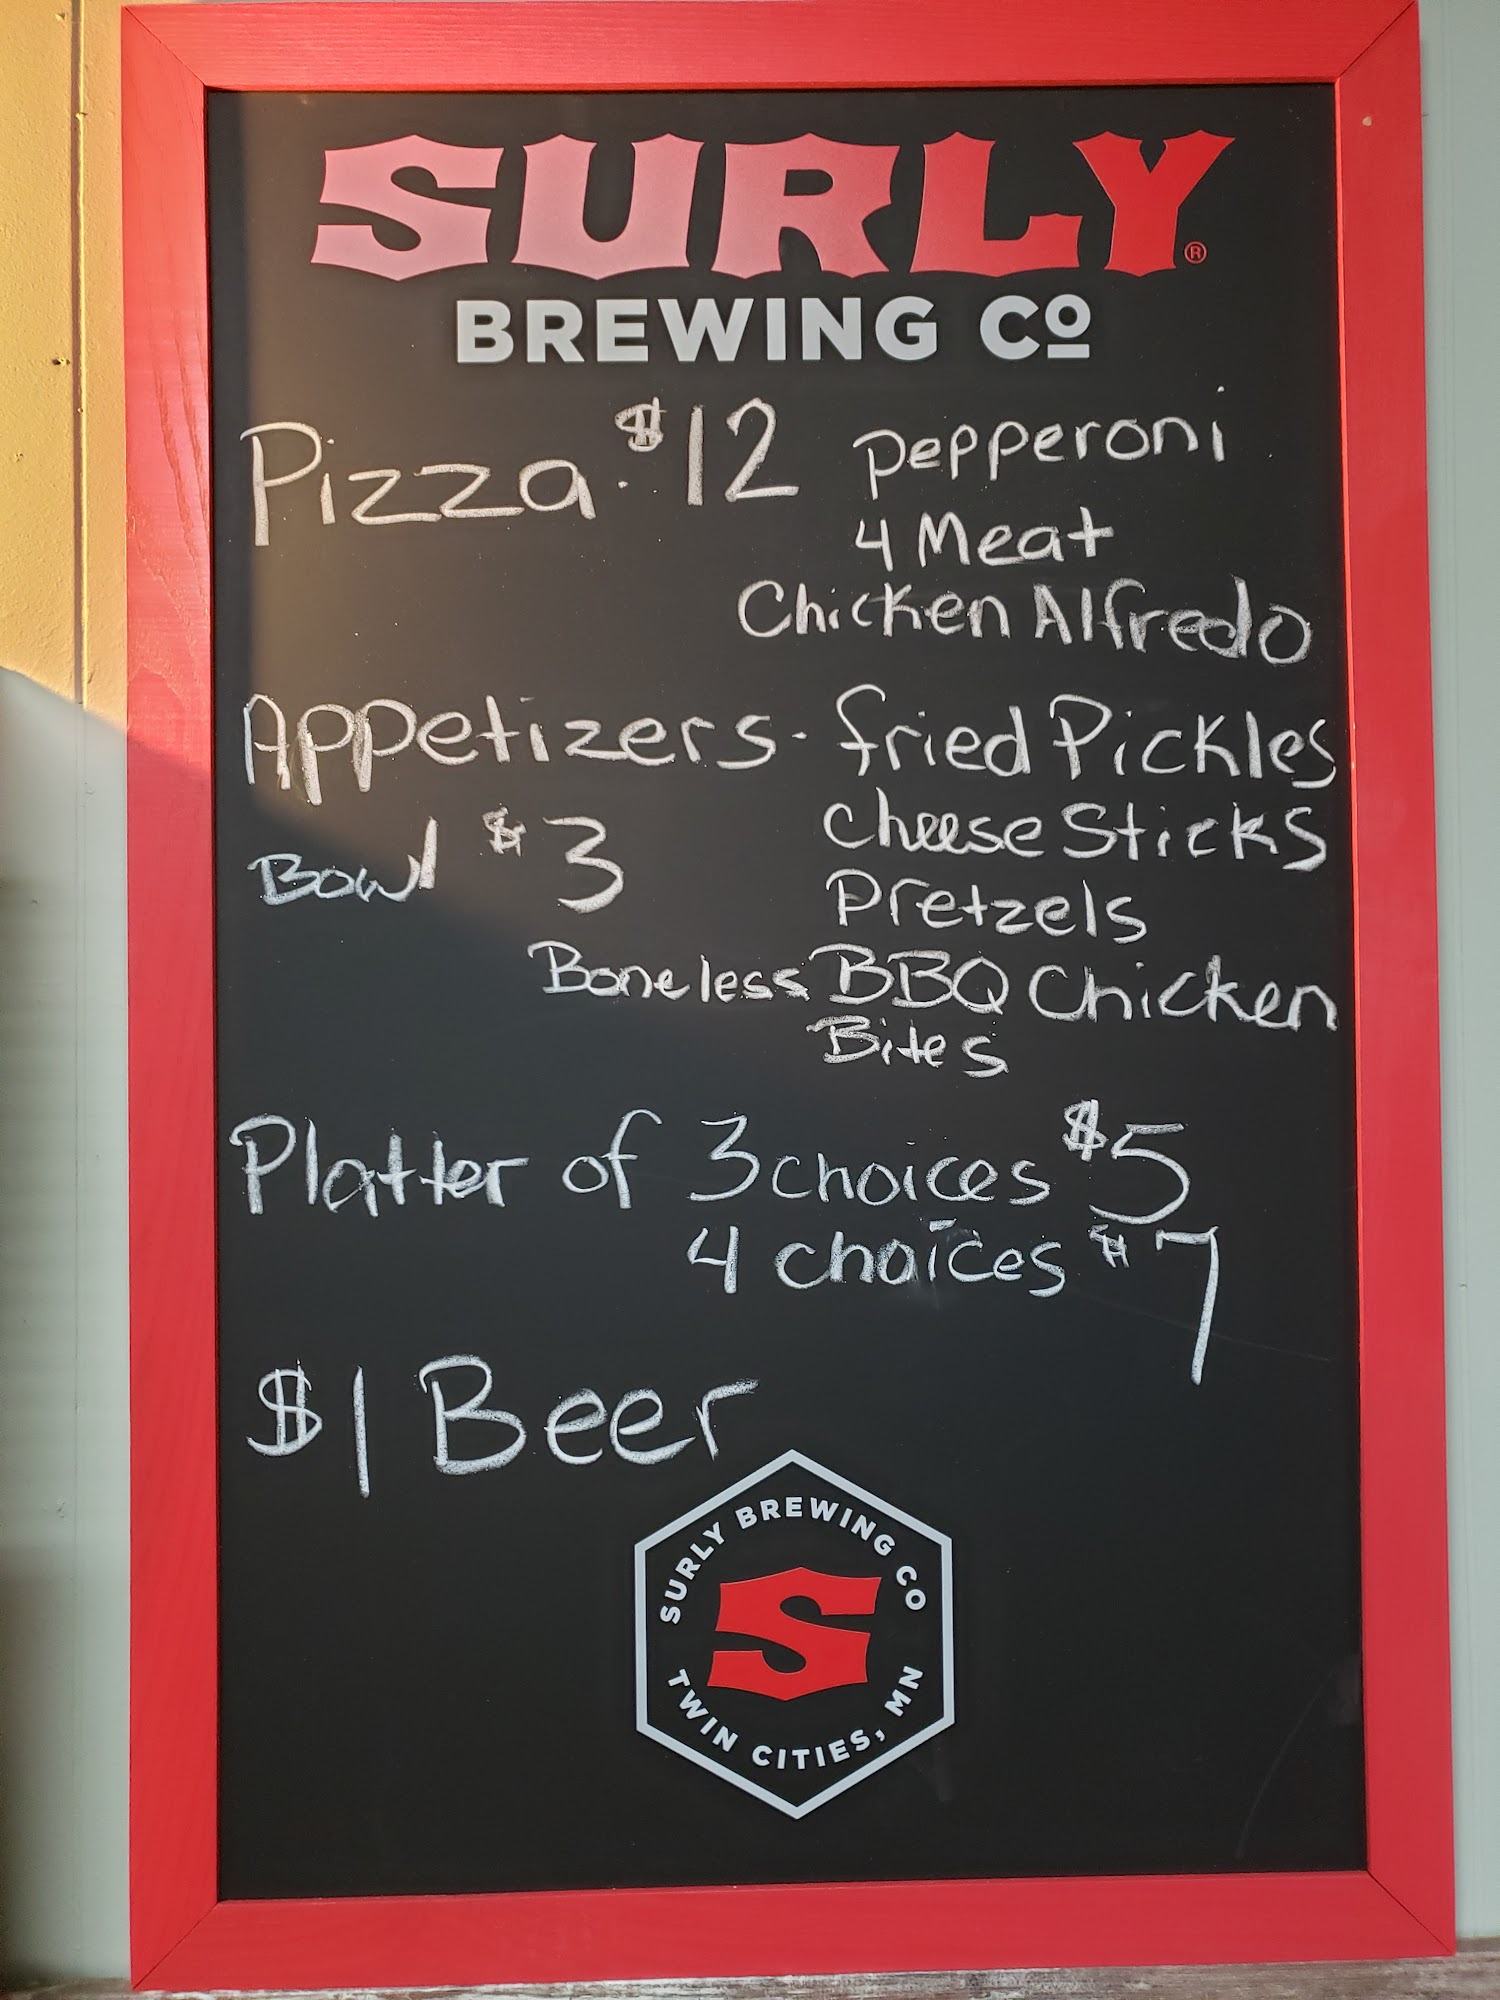 SURLY®
BREWING Co
Pizza. $12 Pepperoni
4 Meat
Chicken Alfredo
Appetizers - fried Pickles
Bowl $3 Cheese Sticks
Pretzels
Boneless BBQ Chicken
Bites
Platter of 3 choices $5
4 choices $7
$1 Beer
SURLY BREWING CO
S
TWIN CITIES, MN